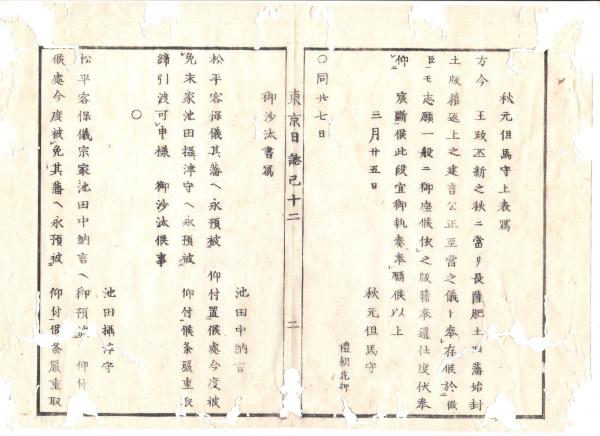 秋元但馬守上表寫
方今　王政丕新之秋ニ當リ長薩肥土四藩始封
土版籍返上之建言公正至當之儀ト奉存候於微
臣モ志願一般ニ御座候依之版籍奉還仕度伏奉
仰　宸斷候此段宜御執奏奉願候以上
三月廿五日　秋元但馬守
禮朝花押
○同廿七日
御沙汰書寫
東京日誌己十二
二
池田中納言
松平容保儀其藩ヘ永預被　仰付置候處今度被
免末家池田攝津守ヘ永預被　仰付候条嚴重取
締引渡可申様　御沙汰候事
○
池田攝津守
松平容保儀宗家池田中納言ヘ御預被　仰付
候處今度被免其藩ヘ永預被　仰付候条嚴重取